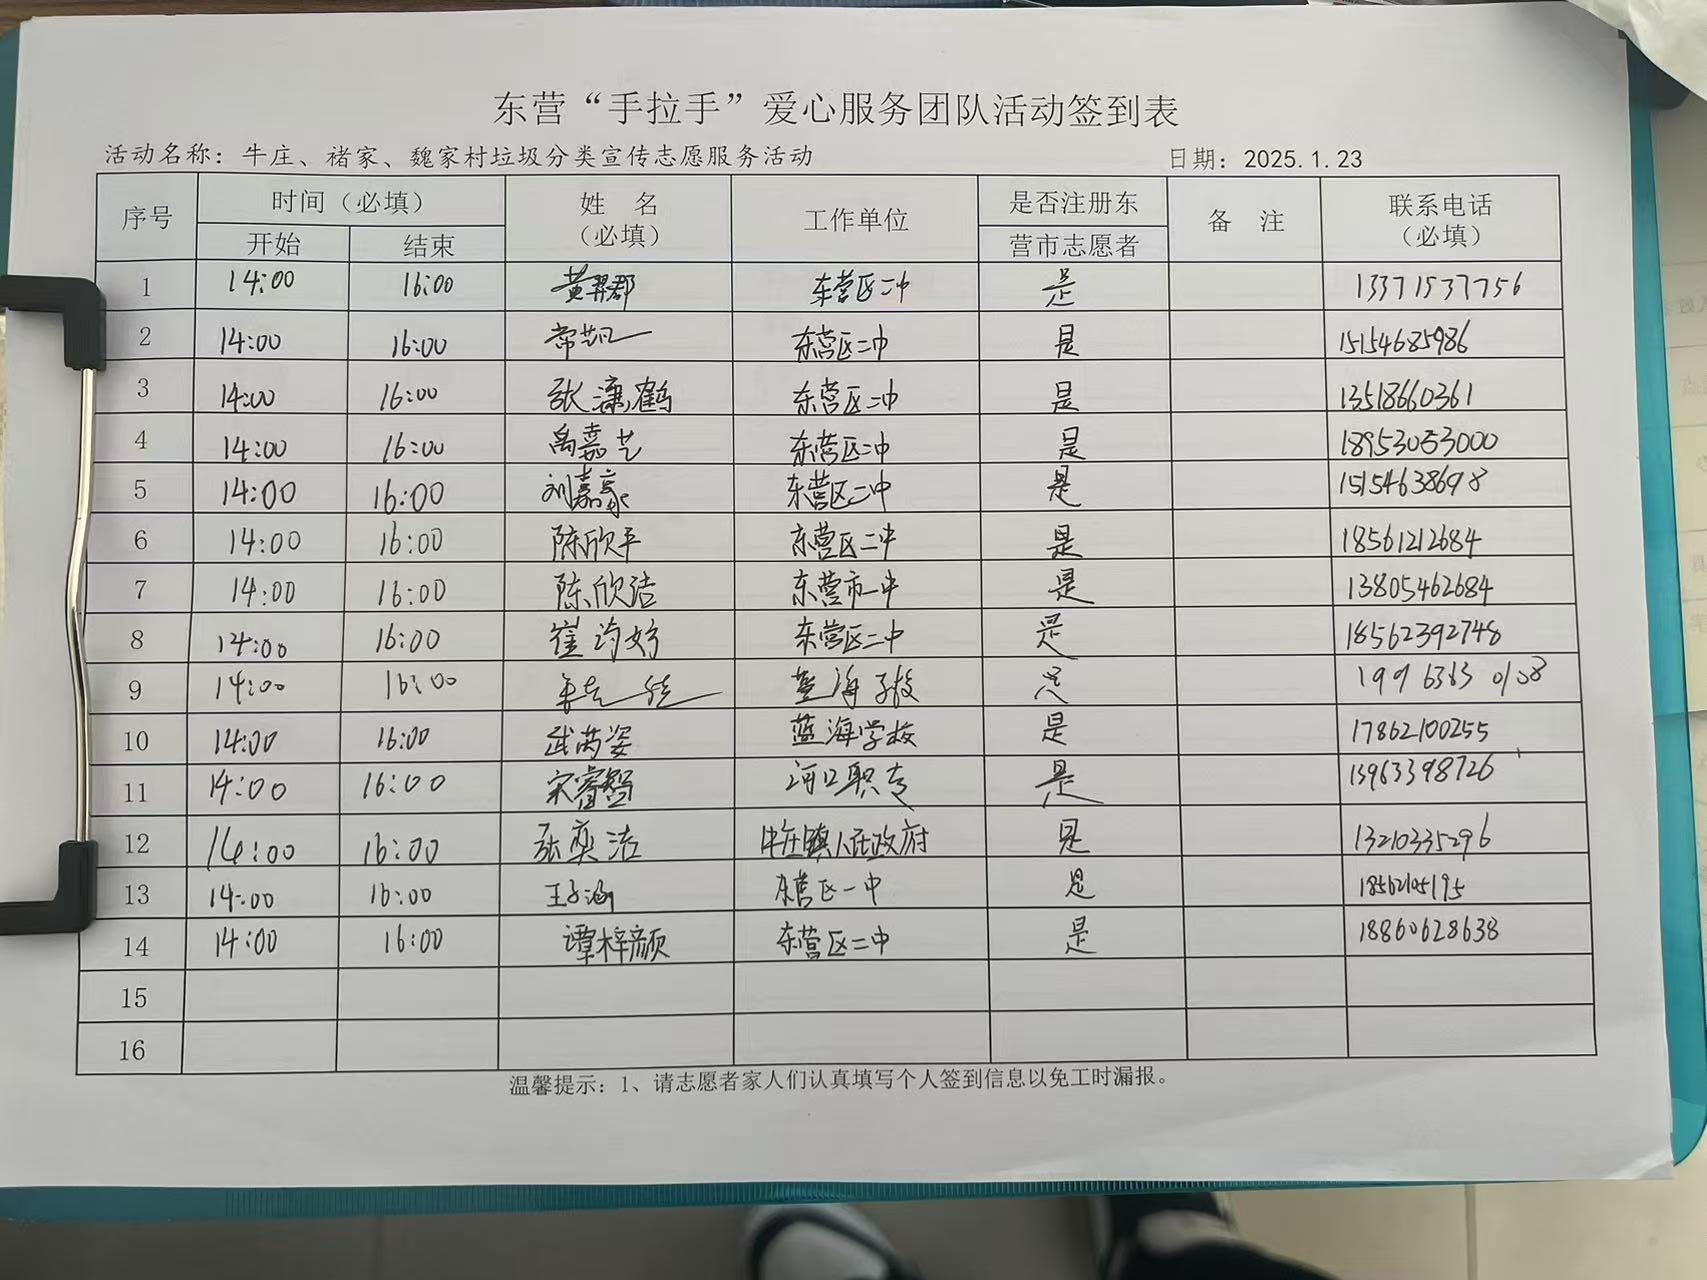 东营“手拉手”爱心服务团队活动签到表
活动名称：牛庄、褚家、魏家村垃圾分类宣传志愿服务活动 日期：2025.1.23
序号 时间（必填） 姓 名（必填） 工作单位 是否注册东营市志愿者 备 注 联系电话（必填）
开始 结束
1 14:00 16:00 黄羿郡 东营区二中 是 13371537756
2 14:00 16:00 常凯 东营区二中 是 15154685986
3 14:00 16:00 张潇鹤 东营区二中 是 13518660361
4 14:00 16:00 禹嘉艺 东营区二中 是 18953053000
5 14:00 16:00 刘嘉豪 东营区二中 是 15154638698
6 14:00 16:00 陈欣平 东营区二中 是 18561212684
7 14:00 16:00 陈欣洁 东营市一中 是 13805462684
8 14:00 16:00 崔均好 东营区二中 是 18562392748
9 14:00 16:00 蓝海学校 是
10 14:00 16:00 武芮姿 蓝海学校 是 17862100255
11 14:00 16:00 宋睿智 河口职专 是 13963398726
12 14:00 16:00 张奕洁 牛庄镇人民政府 是 13210335296
13 14:00 16:00 王子涵 东营区一中 是 18562105195
14 14:00 16:00 谭梓颜 东营区二中 是 18860628638
15
16
温馨提示：1、请志愿者家人们认真填写个人签到信息以免工时漏报。